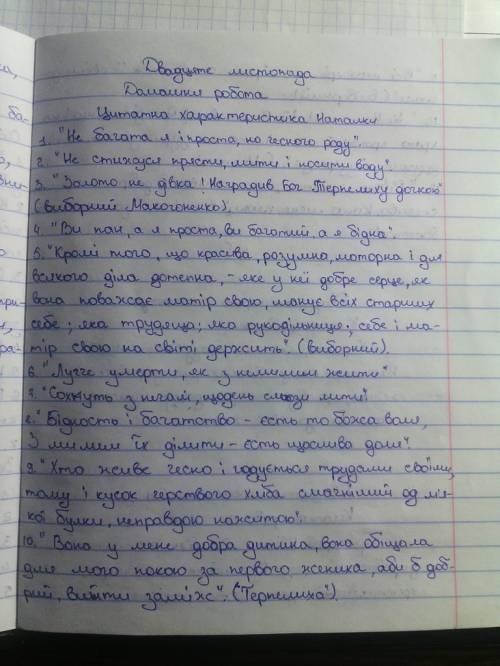 Двадцяте листопада
Домашня робота
Цитатна характеристика Наталки
1. "Не багата я і проста, но чесного роду".
2. "Не стижуся прясти, шити і носити воду"
3. "Золото, не дівка! Наградив Бог Терпелиху дочкою"
(виборний Макогоненко).
4. "Ви пан, а я проста, ви багатий, а я бідна".
5. "Кромі того, що красива, розумна, моторна і для
всякого діла дотепна, - яке у неї добре серце, як
вона поважає матір свою, шанує всіх старших
себе; яка трудяща; яка рукодільниця; себе і ма-
тір свою на світі держить". (виборний).
6. "Лучче умерти, як з немилим жити"
7. "Сохнуть з печалі, щодень сльози лити"
8. "Бідность і багатство - єсть то божа воля,
З милим їх ділити - єсть щаслива доля".
9. "Хто живе чесно і годується трудами своїми,
тому і кусок черствого хліба смачніший од м'я-
кої булки, неправдою нажитої".
10. "Вона у мене добра дитина, вона обіщала
для мого покою за первого жениха, аби б доб-
рий, вийти заміж". ("Терпелиха").